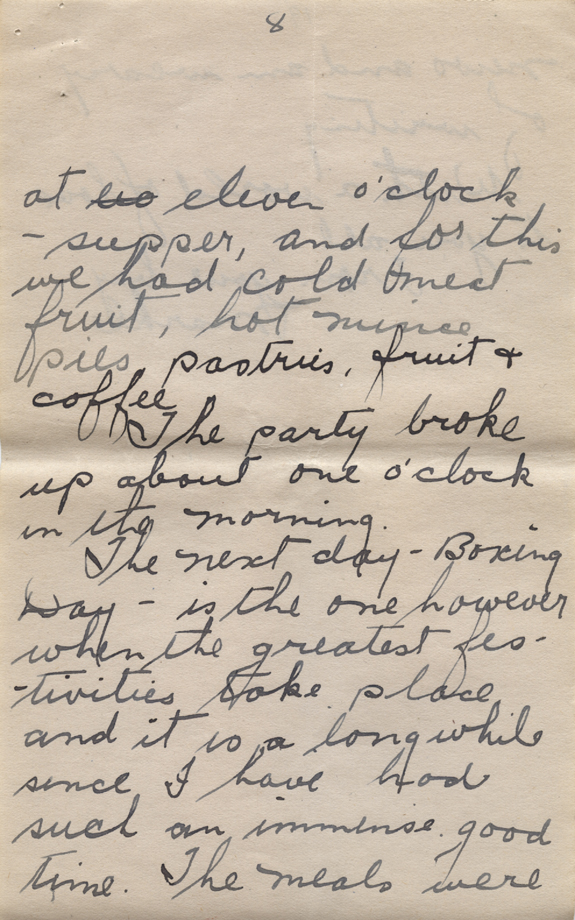 8
at eleven o'clock
- supper, and for this
we had cold meat
fruit, hot mince
pies pastries, fruit &
coffee
The party broke
up about one o'clock
in the morning.
The next day - Boxing
Day - is the one however
when the greatest fes-
-tivities take place
and it is a long while
since I have had
such an immense good
time. The meals were